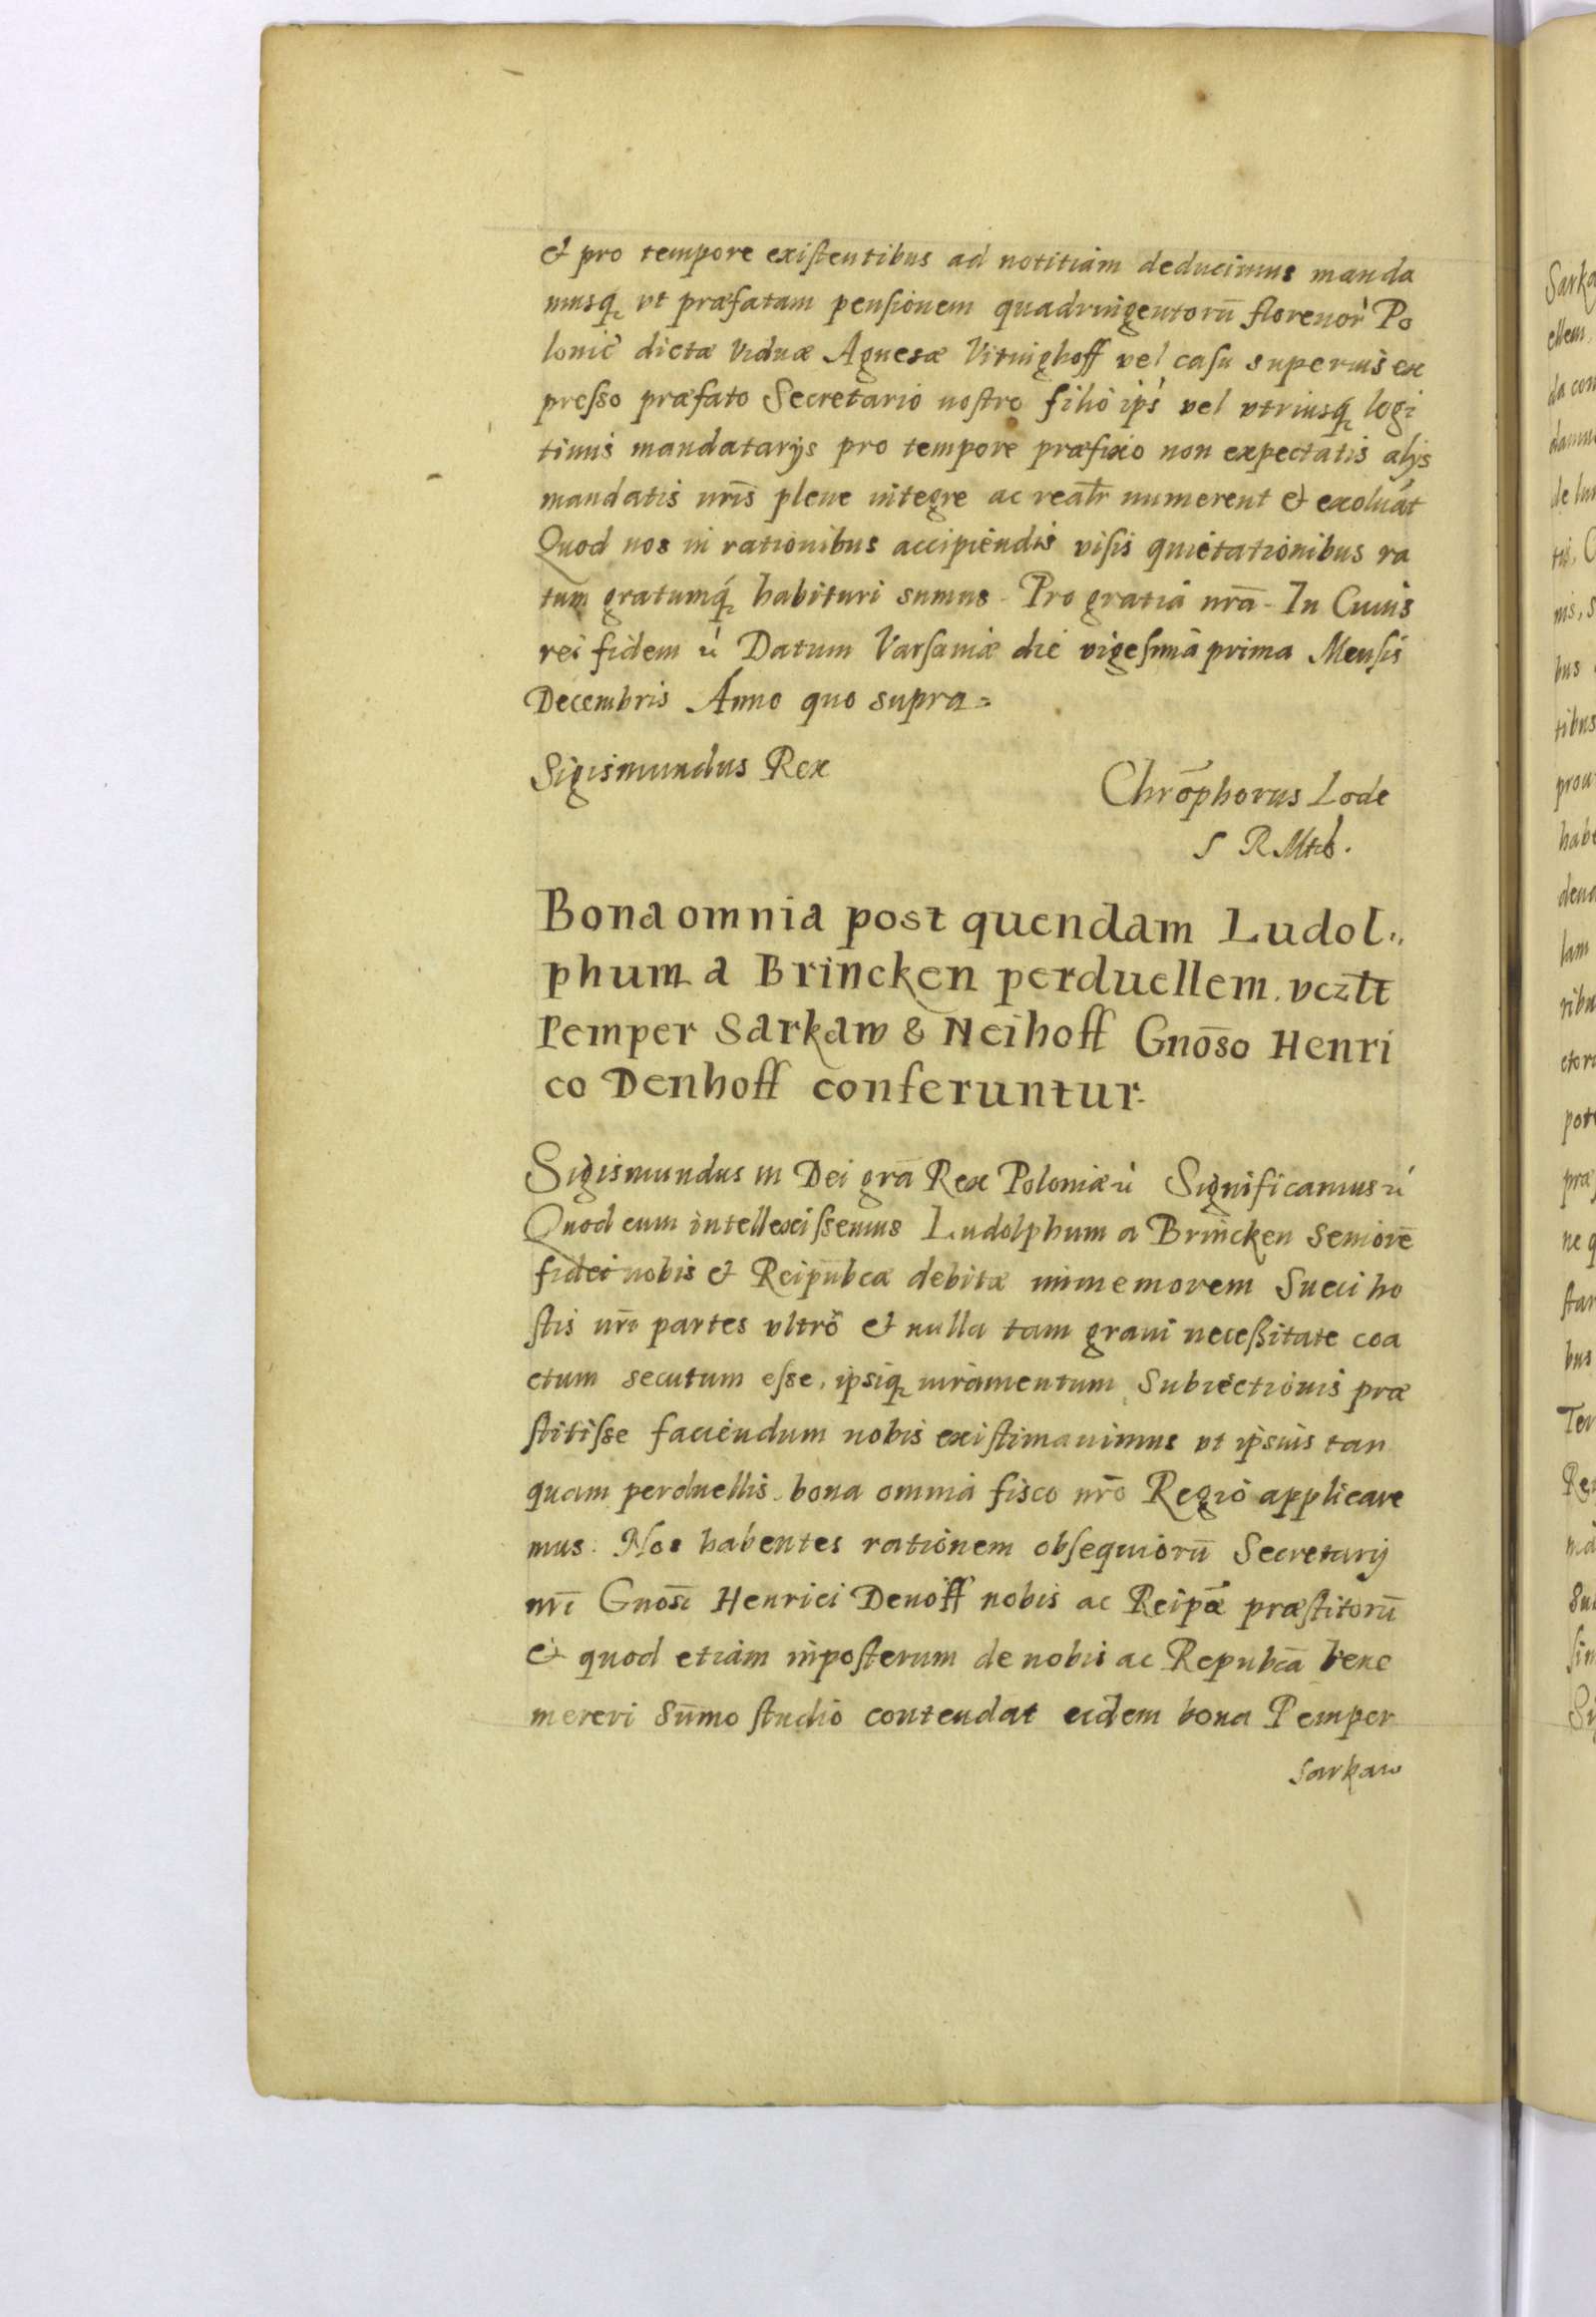 et pro tempore existentibus ad notitiam deducimus manda
musq ut præfatam pensionem quadringentorū florenor Po
lonic dictæ Viduæ Agnesæ Vitnighoff vel casu superius ex
presso præfato Secretario nostro filio ips vel vtriusq legi
timis mandatarys pro tempore præfixo non expectatis alys
mandatis nris plene integre ac realr numerent et exoluāt
Quod nos in rationibus accipiendis visis quietationibus ra
tum gratumq habituri sumus - Pro gratia nrā - In Cuius
rei fidem Datum Varsaviæ die vigesima prima Mensis
Decembris Anno quo supra =
Sigismundus Rex
Chrōphorus Lode
S R Mtis.
Bona omnia post quendam Ludol,,
phum a Brincken perduellem, vczlt
Pemper Sarkaw & Neihoff Gnōso Henri
co Denhoff conferuntur.
Sigismundus III Dei grā Rex Poloniæ Significamus
Quod cum intellexissemus Ludolphum a Brincken Seniorē
fidei nobis et Reipubcæ debitæ immemorem Sueci ho
stis nri partes vltro et nulla tam graui necessitate coa
ctum secutum esse, ipsiq iuramentum Subiectionis præ
stitisse faciendum nobis existimauimus vt ipsius tan
quam perduellis bona omnia fisco nrō Regio applicare
mus. Nos habentes rationem obsequiorū Secretary
nrī Gnosī Henrici Denoff nobis ac Reipæ præstitorū
et quod etiam inposterum de nobis ac Repubcā bene
mereri Sūmo studio contendat eidem bona Pemper
Sarkaw
Sarka
ellem
da con